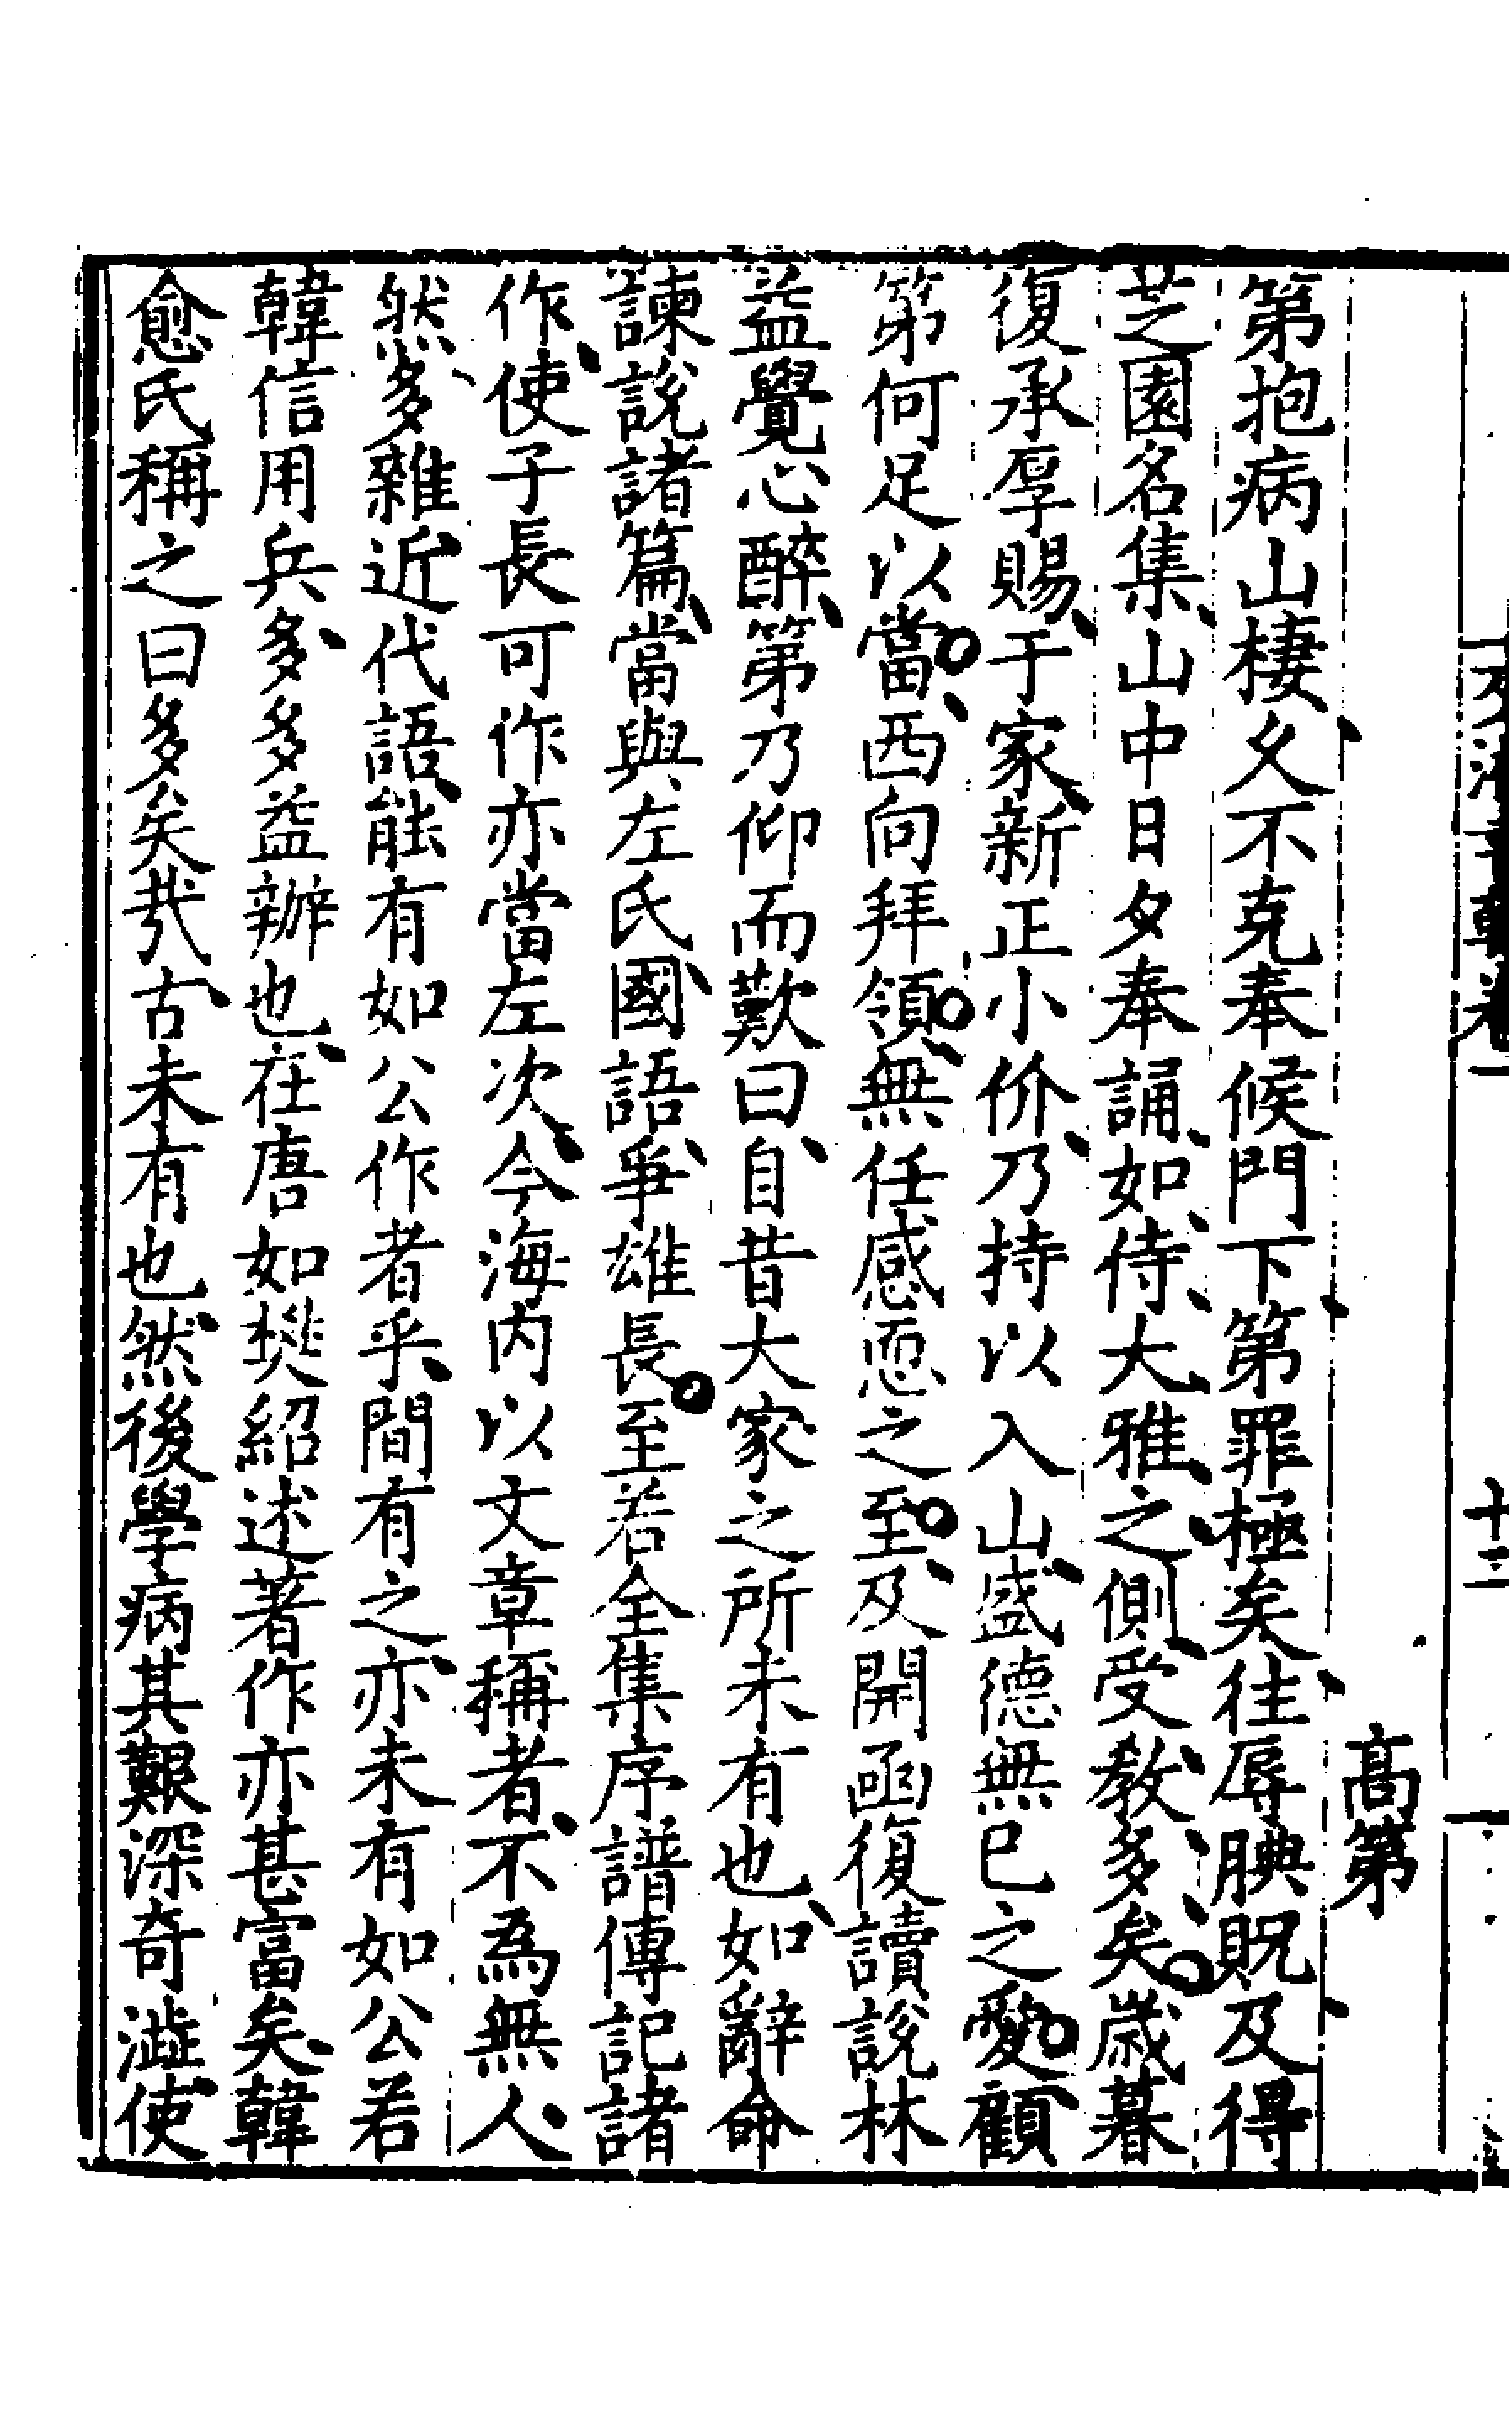 高第
第抱病山棲久不克奉候門下第罪極矣往辱腆貺及得
芝園名集山中日夕奉誦如侍大雅之側受教多矣歲暮
復承厚賜于家新正小价乃持以入山盛德無已之愛顧
第何足以當西向拜領無任感恧之至及開函復讀說林
益覺心醉第乃仰而歎曰自昔大家之所未有也如辭命
諫說諸篇當與左氏國語爭雄長至若全集序譜傳記諸
作使子長可作亦當左次今海內以文章稱者不為無人
然多雜近代語能有如公作者乎間有之亦未有如公若
韓信用兵多多益辦也在唐如樊紹述著作亦甚富矣韓
愈氏稱之曰多矣哉古未有也然後學病其艱深奇澁使